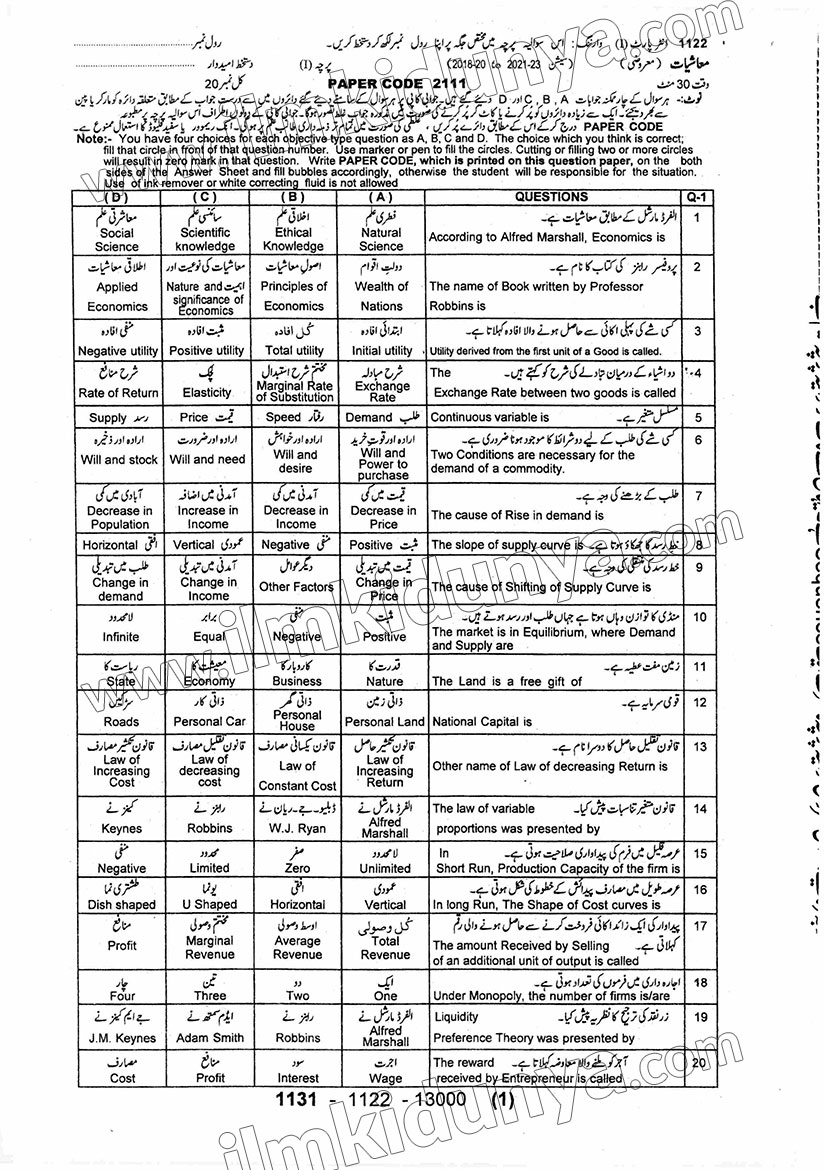 1122 انٹر پارٹ (I) وارننگ: اس سوالیہ پرچہ میں مختص جگہ پر اپنا رول نمبر لکھ کر دستخط کریں۔ رول نمبر
معاشیات (معروضی) (سیشن 23-2021 تا 20-2018) پرچہ (I) دستخط امیدوار
وقت 30 منٹ PAPER CODE 2111 کل نمبر 20
نوٹ:- ہر سوال کے چار ممکنہ جوابات A ، B ، C اور D دئیے گئے ہیں۔
PAPER CODE
Note:- You have four choices for each objective type question as A, B, C and D. The choice which you think is correct;
fill that circle in front of that question number. Use marker or pen to fill the circles. Cutting or filling two or more circles
will result in zero mark in that question. Write PAPER CODE, which is printed on this question paper, on the both
sides of the Answer Sheet and fill bubbles accordingly, otherwise the student will be responsible for the situation.
Use of ink remover or white correcting fluid is not allowed
(D) (C) (B) (A) QUESTIONS Q-1
معاشرتی علم سائنسی علم اخلاقی علم فطری علم الفرڈ مارشل کے مطابق معاشیات ہے۔ 1
Social Science Scientific knowledge Ethical Knowledge Natural Science According to Alfred Marshall, Economics is
اطلاقی معاشیات معاشیات کی نوعیت اور اہمیت اصول معاشیات دولتِ اقوام پروفیسر رابنز کی کتاب کا نام ہے۔ 2
Applied Economics Nature and significance of Economics Principles of Economics Wealth of Nations The name of Book written by Professor Robbins is
منفی افادہ مثبت افادہ کل افادہ ابتدائی افادہ کسی شے کی پہلی اکائی سے حاصل ہونے والا افادہ کہلاتا ہے۔ 3
Negative utility Positive utility Total utility Initial utility Utility derived from the first unit of a Good is called.
شرح منافع لچک مختتم شرح استبدال شرح مبادلہ دو اشیاء کے درمیان تبادلے کی شرح کو کہتے ہیں۔ The 4
Rate of Return Elasticity Marginal Rate of Substitution Exchange Rate Exchange Rate between two goods is called
Supply رسد Price قیمت Speed رفتار Demand طلب Continuous variable is مسلسل متغیر ہے۔ 5
ارادہ اور ذخیرہ ارادہ اور ضرورت ارادہ اور خواہش ارادہ اور قوت خرید کسی شے کی طلب کے لیے دو شرائط کا موجود ہونا ضروری ہے۔ 6
Will and stock Will and need Will and desire Will and Power to purchase Two Conditions are necessary for the demand of a commodity.
آبادی میں کمی آمدنی میں اضافہ آمدنی میں کمی قیمت میں کمی طلب کے بڑھنے کی وجہ ہے۔ 7
Decrease in Population Increase in Income Decrease in Income Decrease in Price The cause of Rise in demand is
Horizontal افقی Vertical عمودی Negative منفی Positive مثبت The slope of supply curve is خط رسد کا جھکاؤ ہوتا ہے۔ 8
طلب میں تبدیلی آمدنی میں تبدیلی دیگر عوامل قیمت میں تبدیلی خط رسد کی منتقلی کی وجہ ہے۔ 9
Change in demand Change in Income Other Factors Change in Price The cause of Shifting of Supply Curve is
لامحدود برابر منفی مثبت منڈی کا توازن وہاں ہوتا ہے جہاں طلب اور رسد ہوتے ہیں۔ 10
Infinite Equal Negative Positive The market is in Equilibrium, where Demand and Supply are
ریاست کا معیشت کا کاروبار کا قدرت کا زمین مفت عطیہ ہے۔ 11
State Economy Business Nature The Land is a free gift of
سڑکیں ذاتی کار ذاتی گھر ذاتی زمین قومی سرمایہ ہے۔ 12
Roads Personal Car Personal House Personal Land National Capital is
قانون تکثیر مصارف قانون تقلیل مصارف قانون یکسانی مصارف قانون تکثیر حاصل قانون تقلیل حاصل کا دوسرا نام ہے۔ 13
Law of Increasing Cost Law of decreasing cost Law of Constant Cost Law of Increasing Return Other name of Law of decreasing Return is
کینز نے رابنز نے ڈبلیو۔جے۔ریان نے الفرڈ مارشل نے The law of variable قانون متغیر تناسبات پیش کیا۔ 14
Keynes Robbins W.J. Ryan Alfred Marshall proportions was presented by
منفی محدود صفر لامحدود In عرصہ قلیل میں فرم کی پیداواری صلاحیت ہوتی ہے۔ 15
Negative Limited Zero Unlimited Short Run, Production Capacity of the firm is
طشتری نما یو نما افقی عمودی عرصہ طویل میں مصارف پیدائش کے خطوط کی شکل ہوتی ہے۔ 16
Dish shaped U Shaped Horizontal Vertical In long Run, The Shape of Cost curves is
منافع مختتم وصولی اوسط وصولی کل وصولی پیداوار کی ایک زائد اکائی فروخت کرنے سے حاصل ہونے والی رقم کہلاتی ہے۔ 17
Profit Marginal Revenue Average Revenue Total Revenue The amount Received by Selling of an additional unit of output is called
چار تین دو ایک اجارہ داری میں فرموں کی تعداد ہوتی ہے۔ 18
Four Three Two One Under Monopoly, the number of firms is/are
جے ایم کینز نے ایڈم سمتھ نے رابنز نے الفرڈ مارشل نے Liquidity زر نقد کی ترجیح کا نظریہ پیش کیا۔ 19
J.M. Keynes Adam Smith Robbins Alfred Marshall Preference Theory was presented by
مصارف منافع سود اجرت The reward آجر کو ملنے والا معاوضہ کہلاتا ہے۔ 20
Cost Profit Interest Wage received by Entrepreneur is called
1131 - 1122 - 13000 (1)
www.ilmkidunya.com
www.ilmkidunya.com
ilmkidunya.com